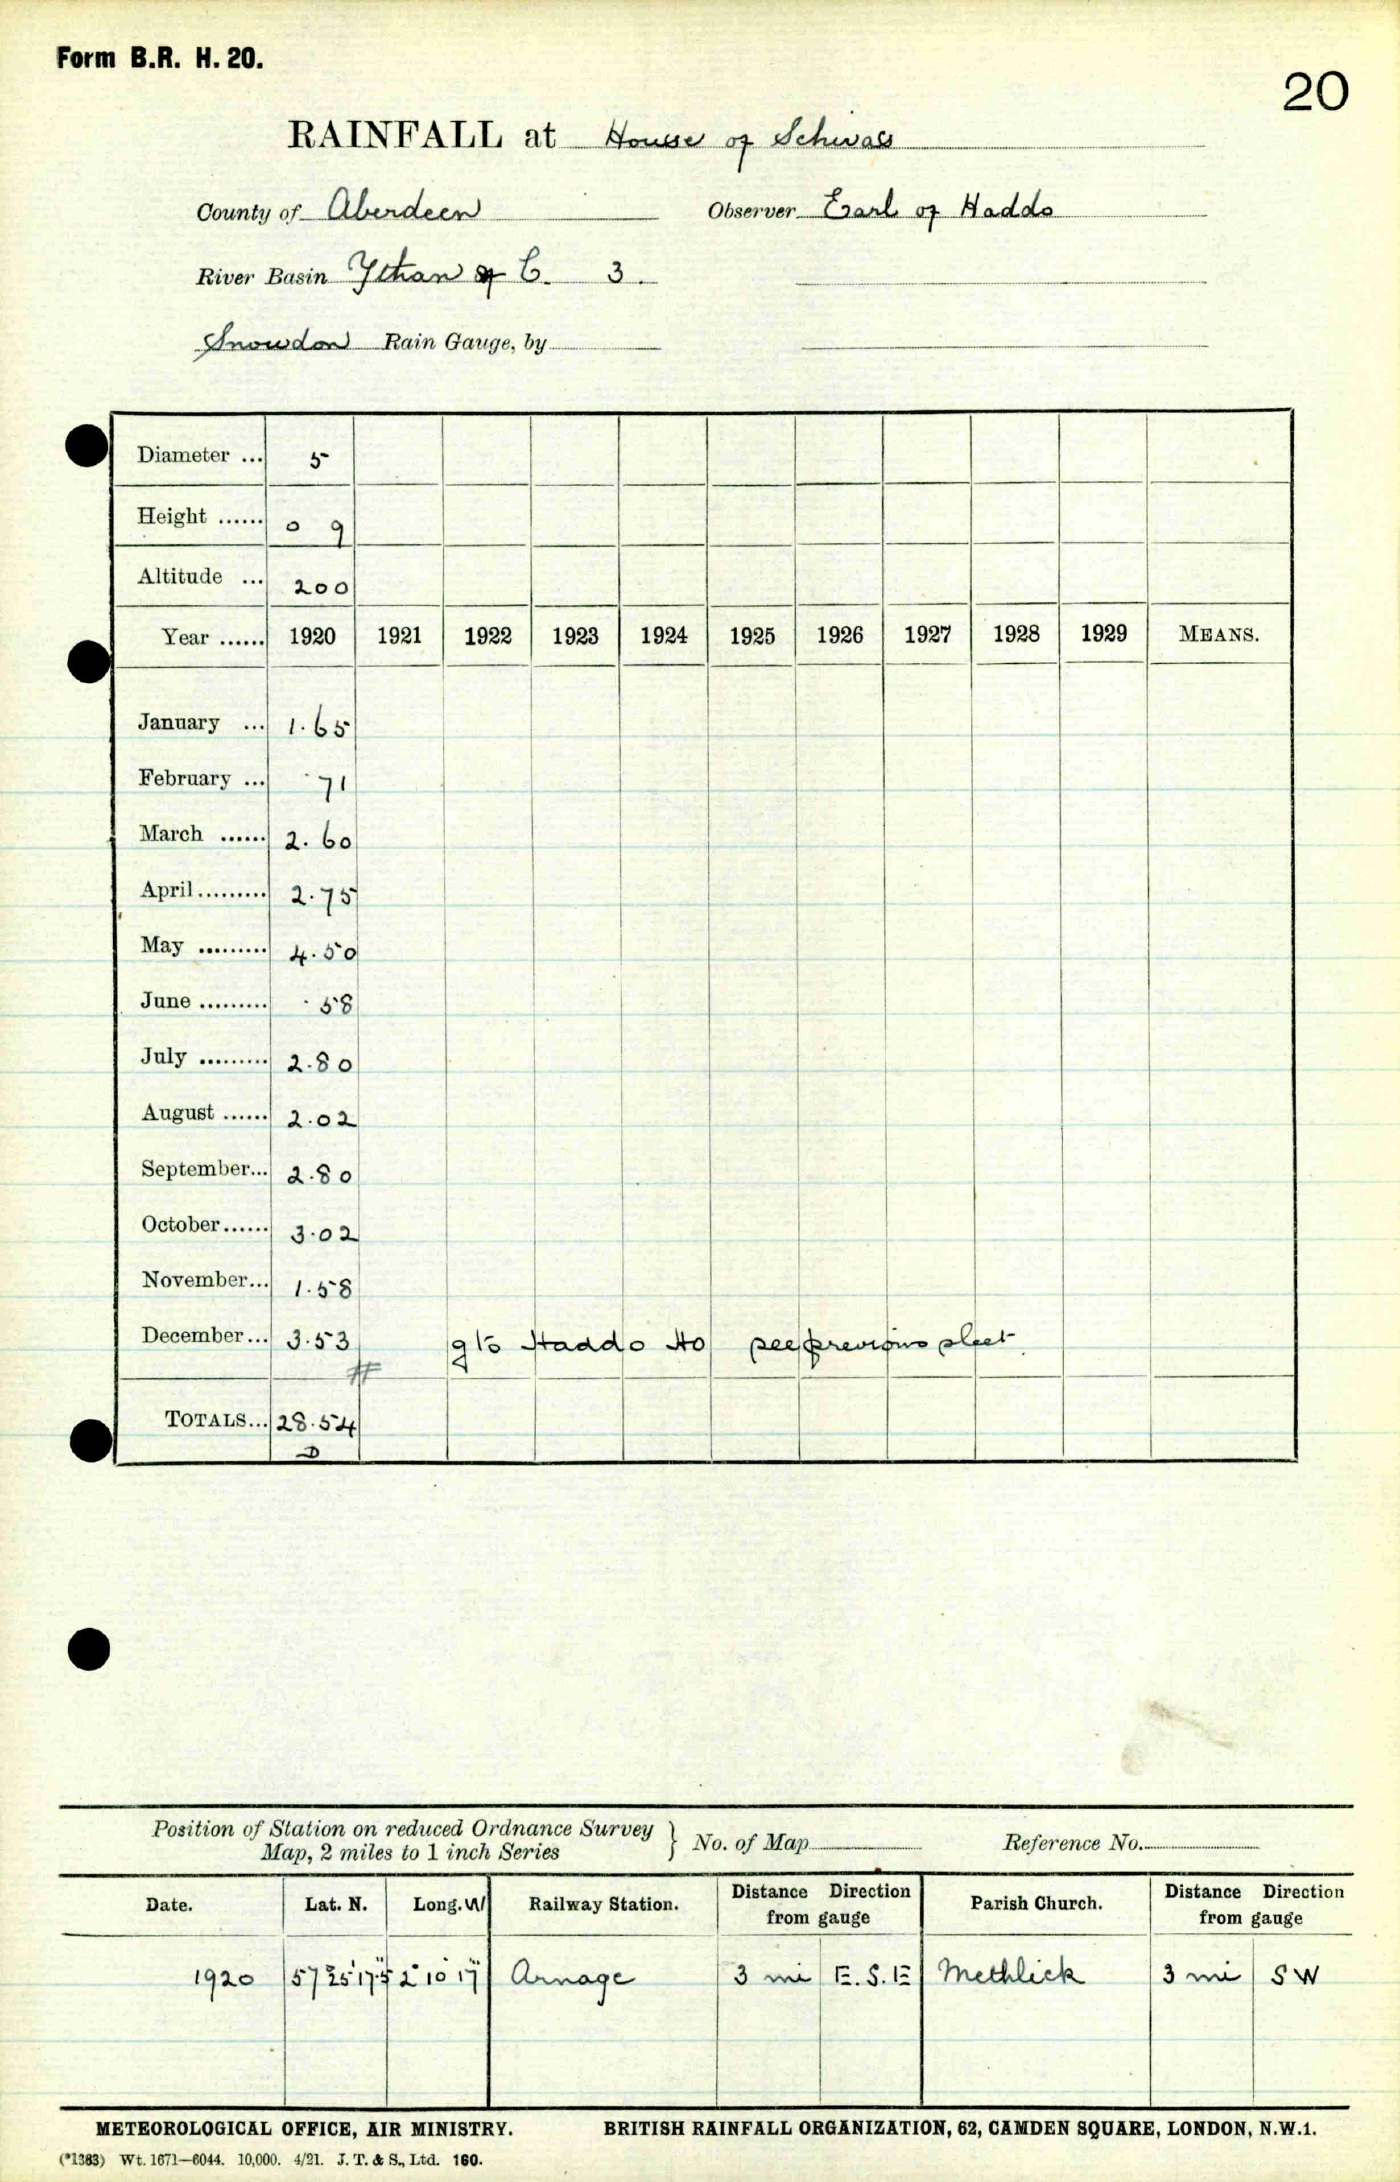 Form B.R. H. 20.
20
RAINFALL at House of Schivas
County of Aberdeen Observer Earl of Haddo
River Basin Ythan & C. 3.
Snowdon Rain Gauge, by
Diameter ... 5
Height ...... 0 9
Altitude ... 200
Year ...... 1920 1921 1922 1923 1924 1925 1926 1927 1928 1929 MEANS.
January ... 1.65
February ... .71
March ...... 2.60
April ......... 2.75
May ......... 4.50
June ......... .58
July ......... 2.80
August ...... 2.02
September... 2.80
October...... 3.02
November... 1.58
December... 3.53 g to Haddo Ho see previous sheet
#
TOTALS... 28.54
D
Position of Station on reduced Ordnance Survey
Map, 2 miles to 1 inch Series } No. of Map Reference No.
Date. Lat. N. Long. W Railway Station. Distance Direction from gauge Parish Church. Distance Direction from gauge
1920 57°25'17.5" 2°10'17" Arnage 3 mi E.S.E Methlick 3 mi SW
METEOROLOGICAL OFFICE, AIR MINISTRY. BRITISH RAINFALL ORGANIZATION, 62, CAMDEN SQUARE, LONDON, N.W.1.
(*1383) Wt. 1671—6044. 10,000. 4/21. J. T. & S., Ltd. 160.